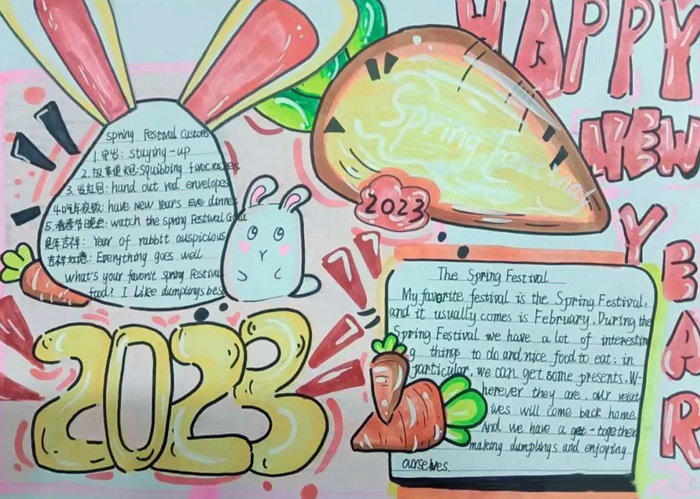 HAPPY
NEW
YEAR
Spring Festival
2023
Spring Festival Customs
1.守岁: staying-up
2.放草便炮:squibbing firecrackers
3.发红包: hand out red envelopes
4.吃年夜饭: have New Years Eve dinner
5.看春节晚会: watch the spring Festival Gala
兔年吉祥: Year of rabbit auspicious
吉祥如意: Everything goes well
what's your favorit spring Festival
food? I Like dumplings best
2023
The Spring Festival
My favorite festival is the Spring Festival,
and it usually comes is February. During the
Spring Festival we have a lot of interestin
g things to do and nice food to eat. in
particular, we can get some presents. W-
herever they are, our relat
ives will come back home.
And we have a get-together
making dumplings and enjoying
ourselves.